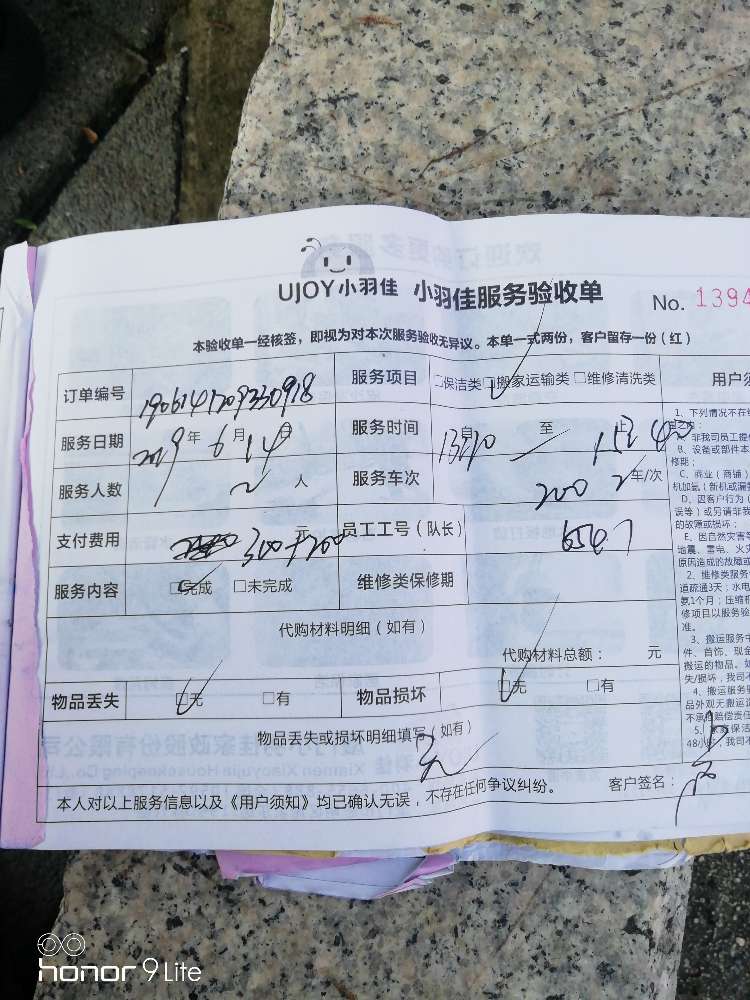 UJOY小羽佳 小羽佳服务验收单 No. 1394
本验收单一经核签，即视为对本次服务验收无异议。本单一式两份，客户留存一份（红）
订单编号 1906141709330918 服务项目 □保洁类 □搬家运输类 □维修清洗类 用户须
服务日期 2019年6月14日 服务时间 自 至 止
服务人数 2人 服务车次 200 2车/次
支付费用 300+200元 员工工号（队长） 6507
服务内容 □完成 □未完成 维修类保修期
代购材料明细（如有）
代购材料总额： 元
物品丢失 □无 □有 物品损坏 □无 □有
物品丢失或损坏明细填写（如有）
无
本人对以上服务信息以及《用户须知》均已确认无误，不存在任何争议纠纷。 客户签名：
1、下列情况不在
非我司员工提
B、设备或部件本
修期；
C、商业（商铺）
机加氨（新机或漏
D、因客户行为（
误等）或另请非我
的故障或损坏；
E、因自然灾害等
地震、雷电、火灾
原因造成的故障或
2、维修类服务
道疏通3天；水电
氨1个月；压缩机
修项目以服务验
准。
3、搬运服务中
件、首饰、现金
搬运的物品。如
失/损坏，我司不
4、搬运服务
品外观无搬运
不承担赔偿责任
48小 我司不
honor 9 Lite